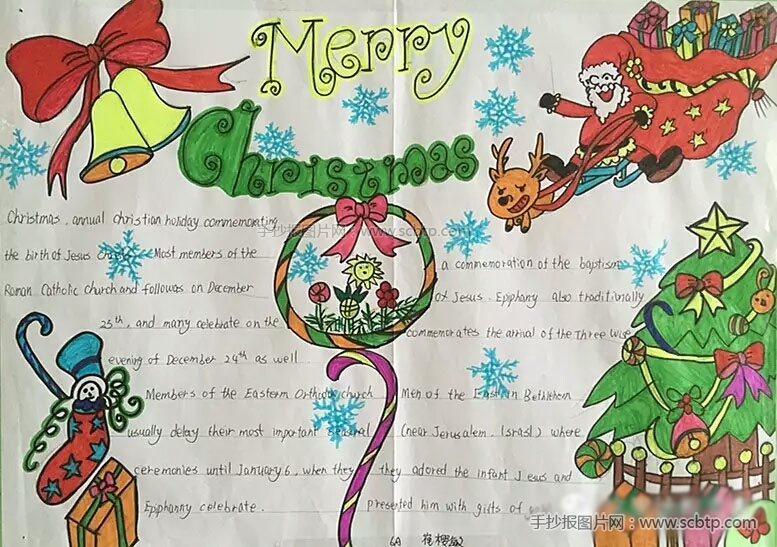 Merry
Christmas
Christmas, annual christian holiday commemorating
the birth of Jesus Most members of the
Roman Catholic church and follow as on December
25th, and many celebrate on the
evening of December 24th as well.
Members of the Eastern Orthodox church
usually delay their most important seasonal
ceremonies until January 6, when they
Epiphanny celebrate.
a commemoration of the baptism
of Jesus. Epiphany also traditionally
commemorates the arrival of the Three Wise
Men of the East in Bethlehem
(near Jerusalem, Israsl) where
they adored the infant Jesus and
presented him with gifts of
6A
手抄报图片网：www.scbtp.com
手抄报图片网：www.scbtp.com